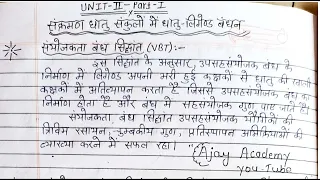 UNIT-II - Part-I
संक्रमण धातु संकुलों में धातु-लिगेण्ड बंधन
संयोजकता बंध सिद्धान्त (VBT):-
इस सिद्धान्त के अनुसार, उपसहसंयोजक बंध के
निर्माण में लिगेण्ड अपनी भरी हुई कक्षकों से धातु की खाली
कक्षकों में अतिव्यापन करता है जिससे उपसहसंयोजक बंध का
निर्माण होता है और बंध में सहसंयोजक गुण पाए जाते हैं।
संयोजकता बंध सिद्धान्त उपसहसंयोजक यौगिकों की
त्रिविम रसायन, चुम्बकीय गुण, प्रतिस्थापन अभिक्रियाओं की
व्याख्या करने में सफल रहा।
Ajay Academy
You-Tube